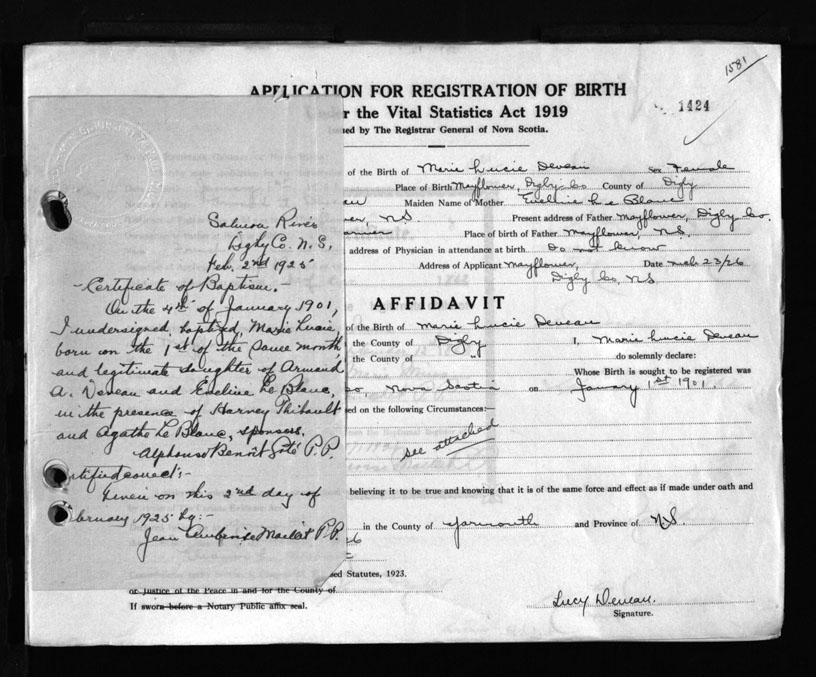 1581
APPLICATION FOR REGISTRATION OF BIRTH
1424
r the Vital Statistics Act 1919
ued by The Registrar General of Nova Scotia.
of the Birth of Marie Lucie Deveau Sex Female
Place of Birth Mayflower, Digby Co County of Digby
au Maiden Name of Mother Eveline Le Blanc
er, N.S. Present address of Father Mayflower, Digby Co.
Place of birth of Father Mayflower, N.S.
address of Physician in attendance at birth Do not know
Address of Applicant Mayflower, Date Mch 23/26
Digby Co, N.S.
AFFIDAVIT
of the Birth of Marie Lucie Deveau
the County of Digby I, Marie Lucie Deveau
the County of " do solemnly declare:
Whose Birth is sought to be registered was
Co Nova Scotia on January 1st 1901
ed on the following Circumstances:—
see attached
believing it to be true and knowing that it is of the same force and effect as if made under oath and
in the County of Yarmouth and Province of N.S.
26
ed Statutes, 1923.
or Justice of the Peace in and for the County of
If sworn before a Notary Public affix seal.
Lucy Deveau.
Signature.
Salmon River
Digby Co. N.S,
Feb. 2nd 1925
-Certificate of Baptism.-
On the 4th of January 1901,
I undersigned, baptized, Marie Lucie,
born on the 1st of the same month,
and legitimate daughter of Armand
A. Deveau and Eveline Le Blanc,
in the presence of Harney Thibault
and Agathe Le Blanc, sponsors.
Alphonse Benoit Coté P.P.
rtified correct:-
Given on this 2nd day of
bruary 1925 by:-
Jean P.P.